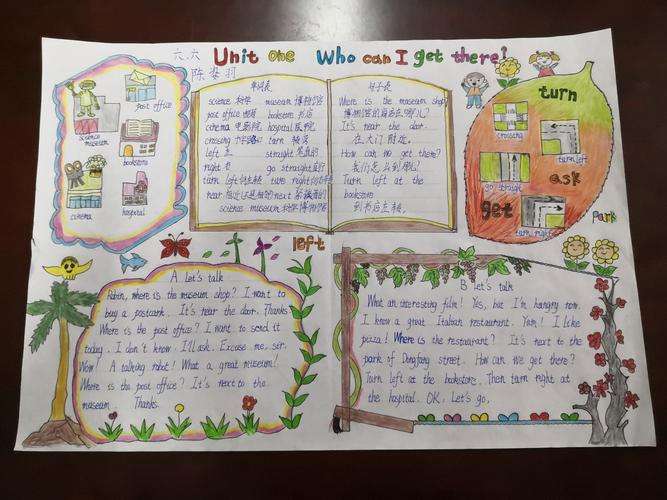 Unit one Who can I get there!
六.六
陈
science museum
post office
bookstore
cinema
hospital
单词表
science 科学 museum 博物馆
post office 邮局 bookstore 书店
cinema 电影院 hospital 医院
crossing 十字路口 turn 转弯
left 左 straight 笔直的
right 右 go straight 直行
turn left 左转 turn right 右转
near 附近 next
science museum 科学博物馆
句子表
Where is the museum shop?
博物馆的商店在哪儿?
It's near the door.
在大门附近。
How can we get there?
我们怎么到那儿?
Turn left at the
bookstore.
到书店左转。
turn
crossing
turn left
go straight
ask
get
turn right
Park
left
A Let's talk
Robin, where is the museum shop? I want to
buy a postcard. It's near the door. Thanks.
Where is the post office? I want to send it
today. I don't know. I'll ask. Excuse me, sir.
Wow! A talking robot! What a great museum!
Where is the post office? It's next to the
museum. Thanks.
B let's talk
What an interesting film! Yes, but I'm hungry now.
I know a great Italian restaurant. Yum! I like
pizza! Where is the restaurant? It's next to the
park of Dongfang street. How can we get there?
Turn left at the bookstore. Then turn right at
the hospital. OK, Let's go.